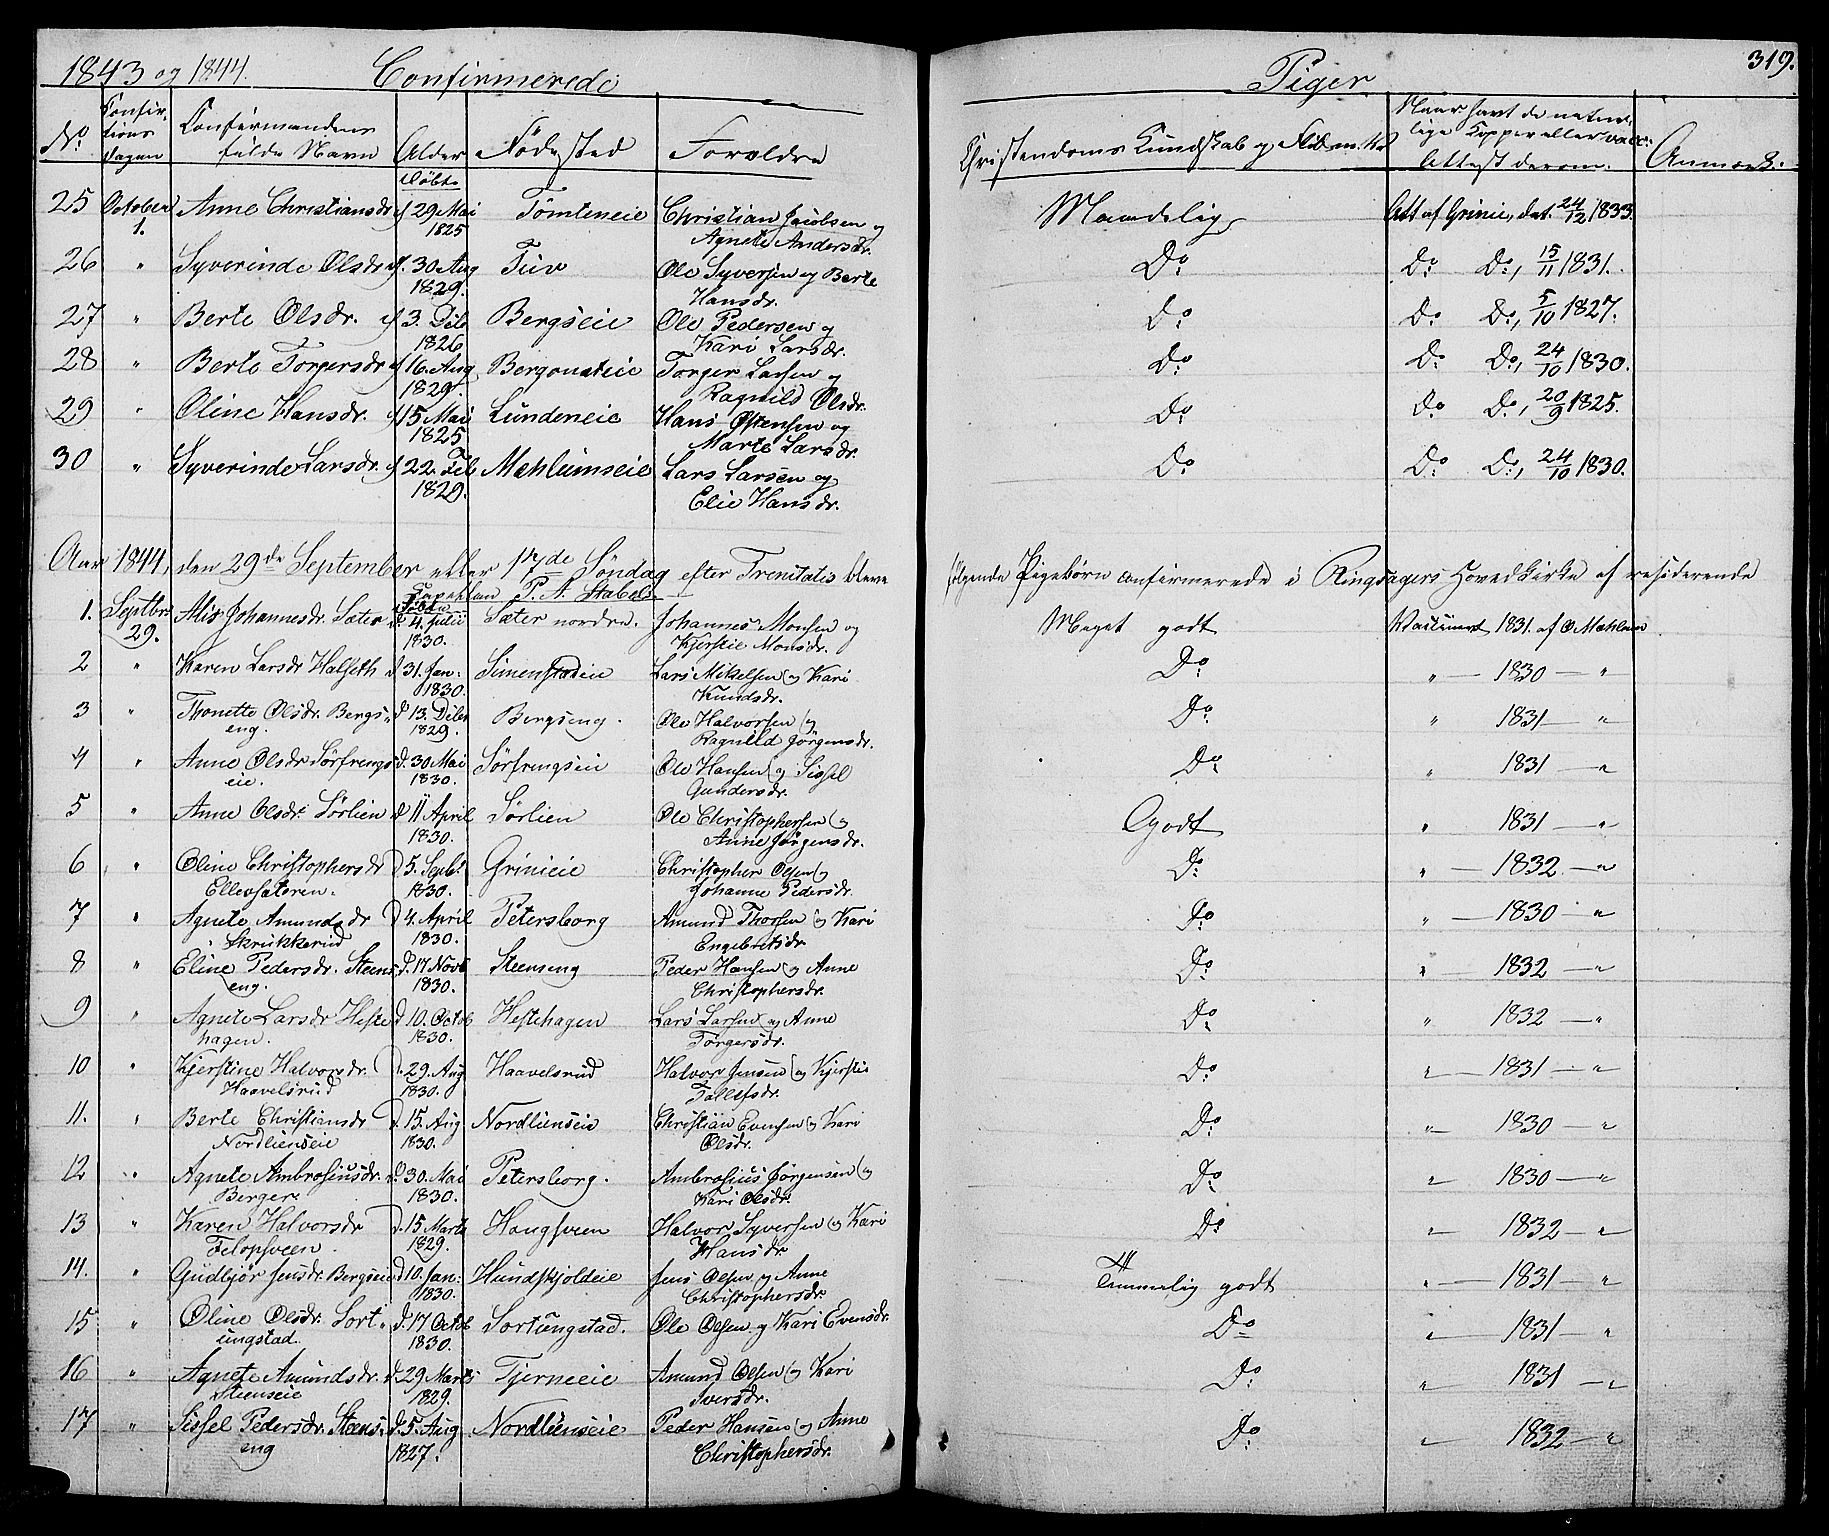 1843 og 1844. Confirmerede Piger 319.
No. Confir-mations dagen Confirmandens fulde Navn Alder Födested Forældre Christendoms Kundskab og Flid m.v. Naar havt de natur-lige Kopper eller vacc: Attest derom. Anmærk.
Döbt
25 October 1. Anne Christiansdr. 29 Mai 1825 Tömteneie Christian Jacobsen og Agnete Andersdr. Maadelig Att af Grinie, dat. 24/12 1833.
26 " Syverinde Olsdr. 30 Aug 1829. Tuv Ole Syversen og Berte Hansdr. Do Do Do, 15/11 1831.
27 " Berte Olsdr. 3. Dcb. 1826 Bergseie Ole Pedersen og Kari Larsdr. Do Do Do, 5/10 1827.
28 " Berte Torgersdr 16 Aug 1829. Torger Larsen og Ragnild Olsdr. Do Do Do, 24/10 1830.
29 " Oline Hansdr. 15 Mai 1825 Lundeneie Hans Østensen og Marte Larsdr. Do Do Do, 20/9 1825.
30 " Syverinde Larsdr. 22 Feb 1829. Mæhlumseie Lars Larsen og Elie Hansdr. Do Do Do, 24/10 1830.
Aar 1844, den 29de September eller 17de Söndag efter Trenitatis bleve følgende Pigebørn confirmerede i Ringsagers Hovedkirke af residerende
Capellan P. A. Stabel.
1. Septbr 29. Alis Johannesdr. Sæter 4. Julii 1830. Sæter nordre. Johannes Monsen og Kjerstie Monsdr. Meget godt Vaccineret 1831. af O Mæhlum
2 " Karen Larsdr Halseth 31. Jan: 1830. Simenstadeie Lars Mikelsen og Kari Knudsdr. Do " — 1830 — "
3 " Thonette Olsdr. Bergs-eng. 13. Dcbr 1829. Bergseng. Ole Halvorsen og Ragnild Jörgensdr. Do " 1831 — "
4 " Anne Olsdr Sörfrengs-eie. d. 30 Mai 1830. Sörfrengseie Ole Hansen og Sissel Gundersdr. Do " 1831 — "
5 " Anne Olsdr. Sörlien d 11 April 1830. Sörlien Ole Christophersen og Anne Jörgensdr. Godt " 1831 — "
6 " Oline Christophersdr Ellevsæteren. D 5. Septr 1830. Grinieie Christopher Olsen og Johanne Pedersdr. Do " — 1832 — "
7 " Agnete Amundsdr Skrukkerud D 4. April 1830. Petersborg Amund Thorsen og Kari Engebretsdr. Do " — 1830 — "
8 " Eline Pedersdr. Steens-eng. D. 17 Novb 1830. Steenseng Peder Hansen og Anne Christophersdr. Do " — 1832 — "
9 " Agnete Larsdr Heste-hagen. D 10. Octob 1830. Hestehagen Lars Larsen og Anne Torgersdr. Do " 1832 — "
10 " Kjerstine Halvorsdr. Haavelsrud D. 29. Aug 1830. Haavelsrud Halvor Jensen og Kjerstie Tollefsdr. Do " — 1831 — "
11. " Berte Christiansdr Nordlienseie D. 15. Aug 1830. Nordlienseie Christian Evensen og Kari Olsdr. Do " — 1830 — "
12 " Agnete Ambrosiusdr. Berger. D. 30. Mai 1830. Petersborg. Ambrosius Jörgensen og Kari Olsdr. Do " — 1830 — "
13 " Karen Halvorsdr Felopsveen. D. 15. Marts 1829. Haugsveen Halvor Syversen og Kari Hansdr. Do " — 1832 — "
14. " Gudbjör Jensdr. Bergseie D 10. Jan: 1830. Hundskjoldeie Jens Olsen og Anne Christophersdr. Temmelig godt " — 1831 — "
15 " Oline Olsdr. Sort-ungstad. D. 17 Octob 1830. Sortungstad. Ole Olsen og Kari Evensdr. Do " — 1831 — "
16 " Agnete Amundsdr. Steenseie D 29 Marts 1829. Tjerneeie Amund Olsen og Kari Iversdr. Do " 1831 — "
17 " Sissel Pedersdr. Steens-eng D. 5. Aug 1827. Nordlienseie Peder Hansen og Anne Christophersdr. Do " 1832 — "